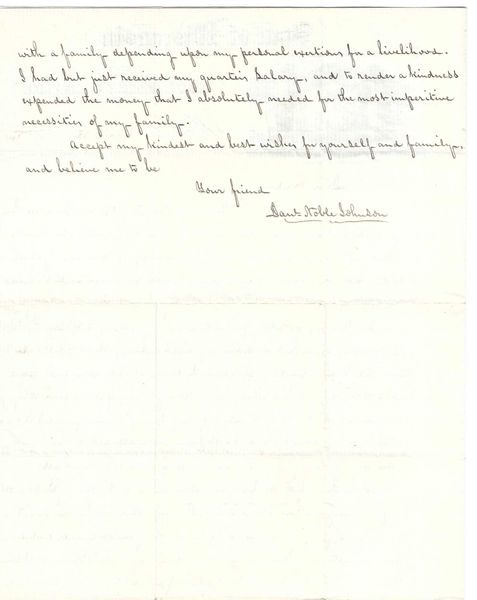 with a family depending upon my personal exertions for a livelihood.
I had but just received my quarters Salary, and to render a kindness
expended the money that I absolutely needed for the most imperitive
necessities of my family.
Accept my kindest and best wishes for yourself and family,
and believe me to be
Your friend
Danl Noble Johnson